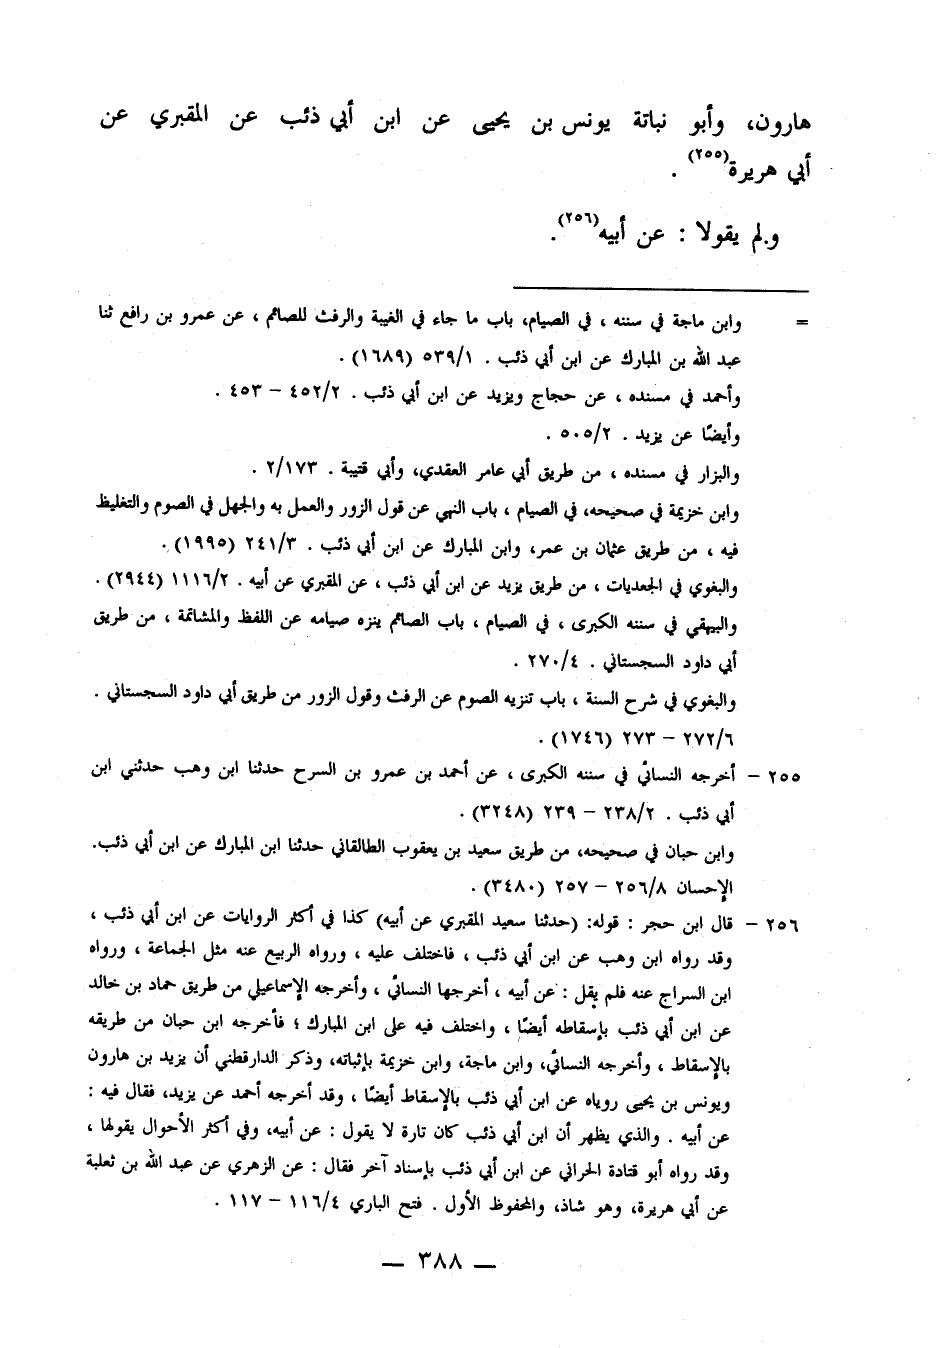 هارون، وأبو نباتة يونس بن يحيى عن ابن أبي ذئب عن المقبري عن
أبي هريرة(٢٥٥) .
ولم يقولا : عن أبيه(٢٥٦).
= وابن ماجة في سننه ، في الصيام، باب ما جاء في الغيبة والرفث للصائم ، عن عمرو بن رافع ثنا
عبد الله بن المبارك عن ابن أبي ذئب . ٥٣٩/١ (١٦٨٩) .
وأحمد في مسنده ، عن حجاج ويزيد عن ابن أبي ذئب . ٤٥٢/٢ – ٤٥٣ .
وأيضًا عن يزيد . ٥٠٥/٢ .
والبزار في مسنده ، من طريق أبي عامر العقدي، وأبي قتيبة . ٢/١٧٣ .
وابن خزيمة في صحيحه، في الصيام ، باب النهي عن قول الزور والعمل به والجهل في الصوم والتغليظ
فيه ، من طريق عثمان بن عمر، وابن المبارك عن ابن أبي ذئب . ٢٤١/٣ (١٩٩٥) .
والبغوي في الجعديات ، من طريق يزيد عن ابن أبي ذئب ، عن المقبري عن أبيه . ١١١٦/٢ (٢٩٤٤) .
والبيهقي في سننه الكبرى ، في الصيام ، باب الصائم ينزه صيامه عن اللفظ والمشاتمة ، من طريق
أبي داود السجستاني . ٢٧٠/٤ .
والبغوي في شرح السنة ، باب تنزيه الصوم عن الرفث وقول الزور من طريق أبي داود السجستاني .
٢٧٢/٦ – ٢٧٣ (١٧٤٦) .
٢٥٥ – أخرجه النسائي في سننه الكبرى ، عن أحمد بن عمرو بن السرح حدثنا ابن وهب حدثني ابن
أبي ذئب . ٢٣٨/٢ – ٢٣٩ (٣٢٤٨) .
وابن حبان في صحيحه، من طريق سعيد بن يعقوب الطالقاني حدثنا ابن المبارك عن ابن أبي ذئب.
الإحسان ٢٥٦/٨ – ٢٥٧ (٣٤٨٠) .
٢٥٦ – قال ابن حجر : قوله: (حدثنا سعيد المقبري عن أبيه) كذا في أكثر الروايات عن ابن أبي ذئب ،
وقد رواه ابن وهب عن ابن أبي ذئب ، فاختلف عليه ، ورواه الربيع عنه مثل الجماعة ، ورواه
ابن السراج عنه فلم يقل : عن أبيه ، أخرجها النسائي ، وأخرجه الإسماعيلي من طريق حماد بن خالد
عن ابن أبي ذئب بإسقاطه أيضًا ، واختلف فيه على ابن المبارك ؛ فأخرجه ابن حبان من طريقه
بالإسقاط ، وأخرجه النسائي، وابن ماجة، وابن خزيمة بإثباته، وذكر الدارقطني أن يزيد بن هارون
ويونس بن يحيى روياه عن ابن أبي ذئب بالإسقاط أيضًا ، وقد أخرجه أحمد عن يزيد، فقال فيه :
عن أبيه . والذي يظهر أن ابن أبي ذئب كان تارة لا يقول : عن أبيه، وفي أكثر الأحوال يقولها ،
وقد رواه أبو قتادة الحراني عن ابن أبي ذئب بإسناد آخر فقال : عن الزهري عن عبد الله بن ثعلبة
عن أبي هريرة، وهو شاذ، والمحفوظ الأول . فتح الباري ١١٦/٤ – ١١٧ .
— ٣٨٨ —